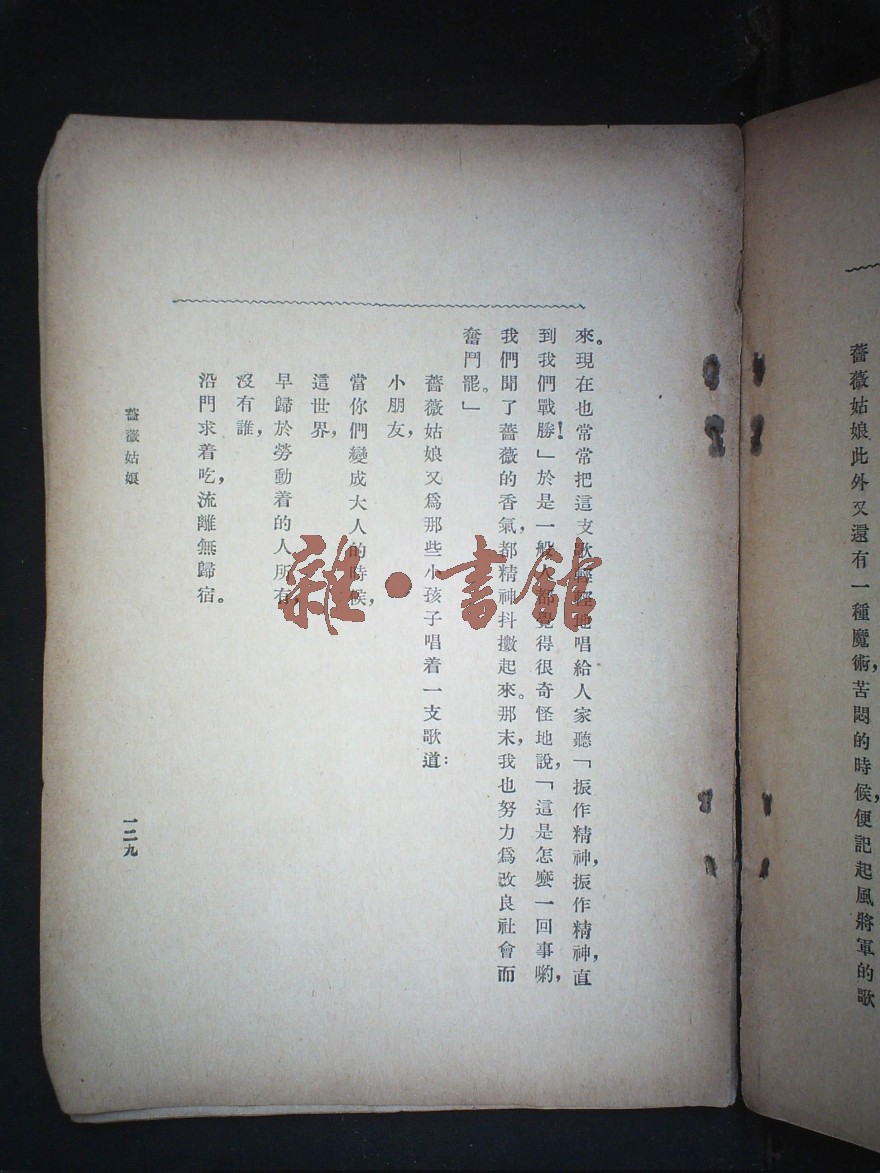 薔薇姑娘此外又還有一種魔術，苦悶的時候，便記起風將軍的歌
來。現在也常常把這支歌輕輕地唱給人家聽「振作精神，振作精神，直
到我們戰勝！」於是一般人都覺得很奇怪地說，「這是怎麼一回事喲，
我們聞了薔薇的香氣，都精神抖擻起來。那末，我也努力爲改良社會而
奮鬥罷。」
薔薇姑娘又爲那些小孩子唱着一支歌道：
小朋友，
當你們變成大人的時候，
這世界，
早歸於勞動着的人所有，
沒有誰，
沿門求着吃，流離無歸宿。
薔薇姑娘
一二九
雜·書館